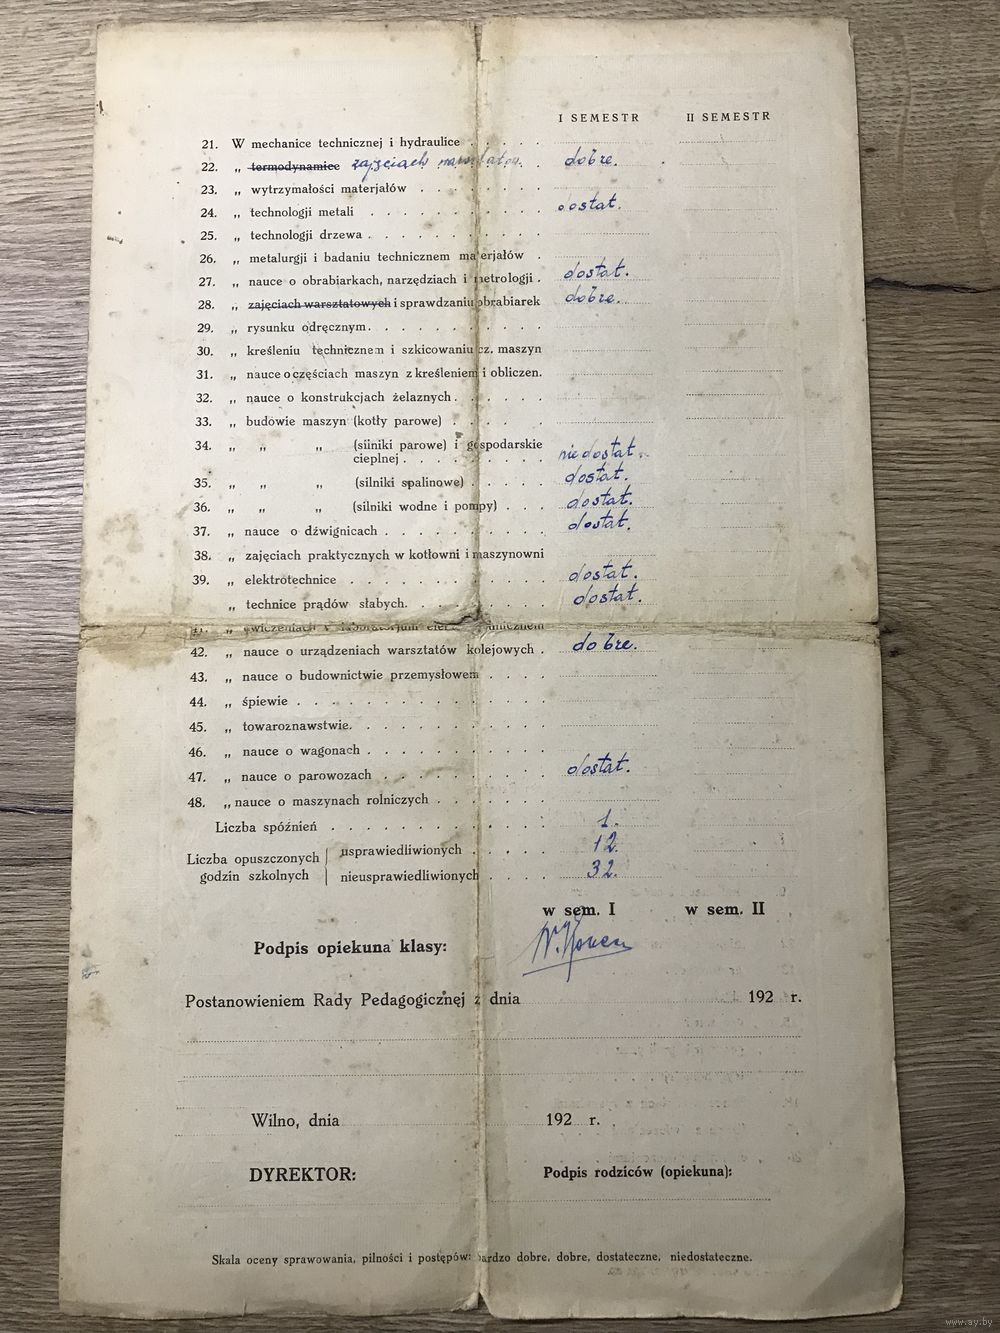 I SEMESTR II SEMESTR
21. W mechanice technicznej i hydraulice . . . .
22. „ termodynamice zajęciach warsztatow. . . dobre.
23. „ wytrzymałości materjałów . . . . . .
24. „ technologji metali . . . . . . . . dostat.
25. „ technologji drzewa . . . . . . . .
26. „ metalurgji i badaniu technicznem materjałów .
27. „ nauce o obrabiarkach, narzędziach i metrologji . dostat.
28. „ zajęciach warsztatowych i sprawdzaniu obrabiarek dobre.
29. „ rysunku odręcznym. . . . . . . .
30. „ kreśleniu technicznem i szkicowaniu cz. maszyn
31. „ nauce o częściach maszyn z kreśleniem i obliczen.
32. „ nauce o konstrukcjach żelaznych . . . . .
33. „ budowie maszyn (kotły parowe) . . . . .
34. „ „ „ (siiniki parowe) i gospodarskie
cieplnej . . . . . . . niedostat.
35. „ „ „ (silniki spalinowe) . . . . dostat.
36. „ „ „ (silniki wodne i pompy) . . . dostat.
37. „ nauce o dźwignicach . . . . . . . dostat.
38. „ zajęciach praktycznych w kotłowni i maszynowni
39. „ elektrotechnice . . . . . . . . . dostat.
„ technice prądów słabych. . . . . . . dostat.
41. „ ćwiczeniach w laboratorjum
42. „ nauce o urządzeniach warsztatów kolejowych . dobre.
43. „ nauce o budownictwie przemysłowem . . . .
44. „ śpiewie . . . . . . . . . . .
45. „ towaroznawstwie. . . . . . . . .
46. „ nauce o wagonach . . . . . . . .
47. „ nauce o parowozach . . . . . . . dostat.
48. „ nauce o maszynach rolniczych . . . . . .
Liczba spóźnień . . . . . . . . . . 1.
Liczba opuszczonych usprawiedliwionych . . . . 12.
godzin szkolnych nieusprawiedliwionych . . . . 32.
w sem. I w sem. II
Podpis opiekuna klasy:
Postanowieniem Rady Pedagogicznej z dnia 192 r.
Wilno, dnia 192 r.
DYREKTOR: Podpis rodziców (opiekuna):
Skala oceny sprawowania, pilności i postępów: bardzo dobre, dobre, dostateczne, niedostateczne.
www.ay.by